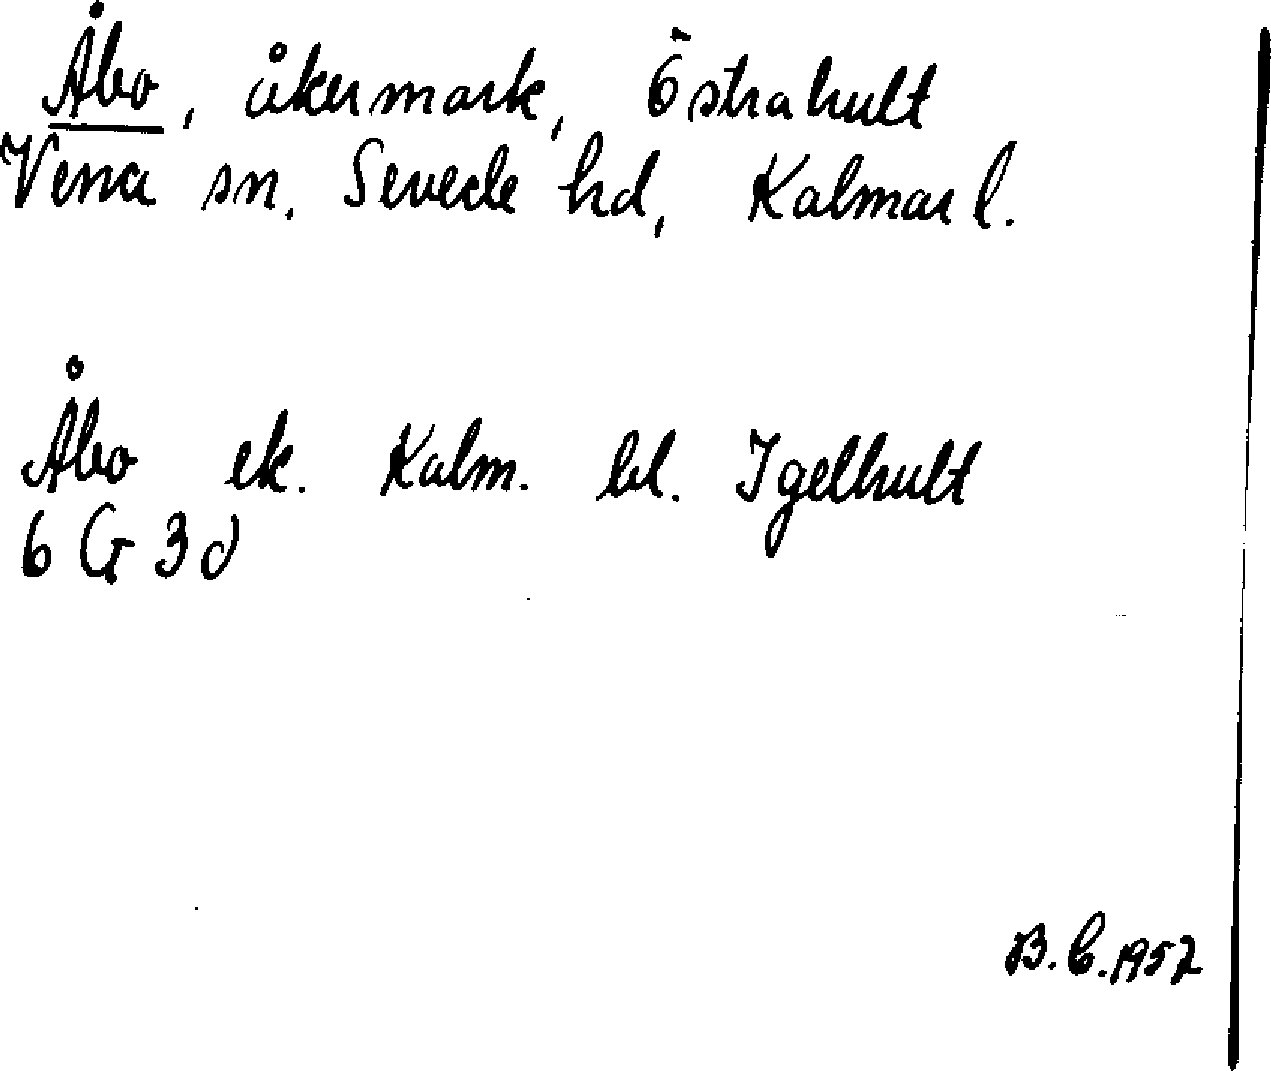 Åbo, åkermark, Östrahult
Vena sn, Sevede hd, Kalmar l.
Åbo ek. Kalm. bl. Igelhult
6 G 3 d
B. C. 1957